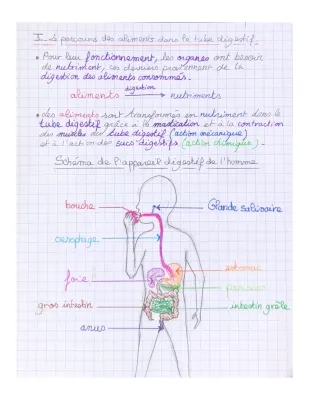 I - Le parcours des aliments dans le tube digestif.
• Pour leur fonctionnement, les organes ont besoin
de nutriment, ces derniers proviennent de la
digestion des aliments consommés.
digestion
aliments → nutriments
• Les aliments sont transformés en nutriment dans le
tube digestif grâce à la mastication et à la contraction
des muscles du tube digestif (action mécanique)
et à l'action des sucs digestifs (action chimique).
Schéma de l'appareil digestif de l'homme
bouche
Glande salivaire
œsophage
estomac
foie
pancréas
gros intestin
intestin grêle
anus